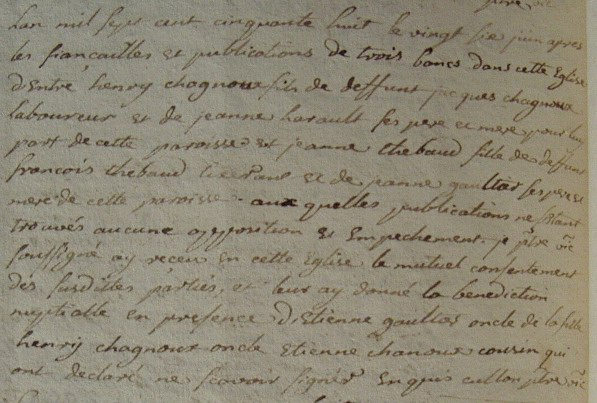 ptre vic
Lan mil sept cent cinquante huit le vingt six juin apres
les fiancailles et publications de trois bancs dans cette Eglise
D'Entre henry chagnoux fils de deffunt jacques chagnoux
Laboureur et de jeanne harault ses pere et mere pour luy
part de cette paroisse et jeanne thebaud fille de deffunt
francois thebaud et de jeanne gaultas ses pere et
mere de cette paroisse aux quelles publications ne sétant
trouvés aucune opposition et Empechement. je ptre vic
soussigné ay receu En cette Eglise le mutuel consentement
des susdittes parties, et leur ay donné la benediction
nuptialle en presence D'Etienne gaultas oncle de la fille
henry chagnoux oncle Etienne chanoux cousin qui
ont declaré ne scavoir signer Enquis ptre vic